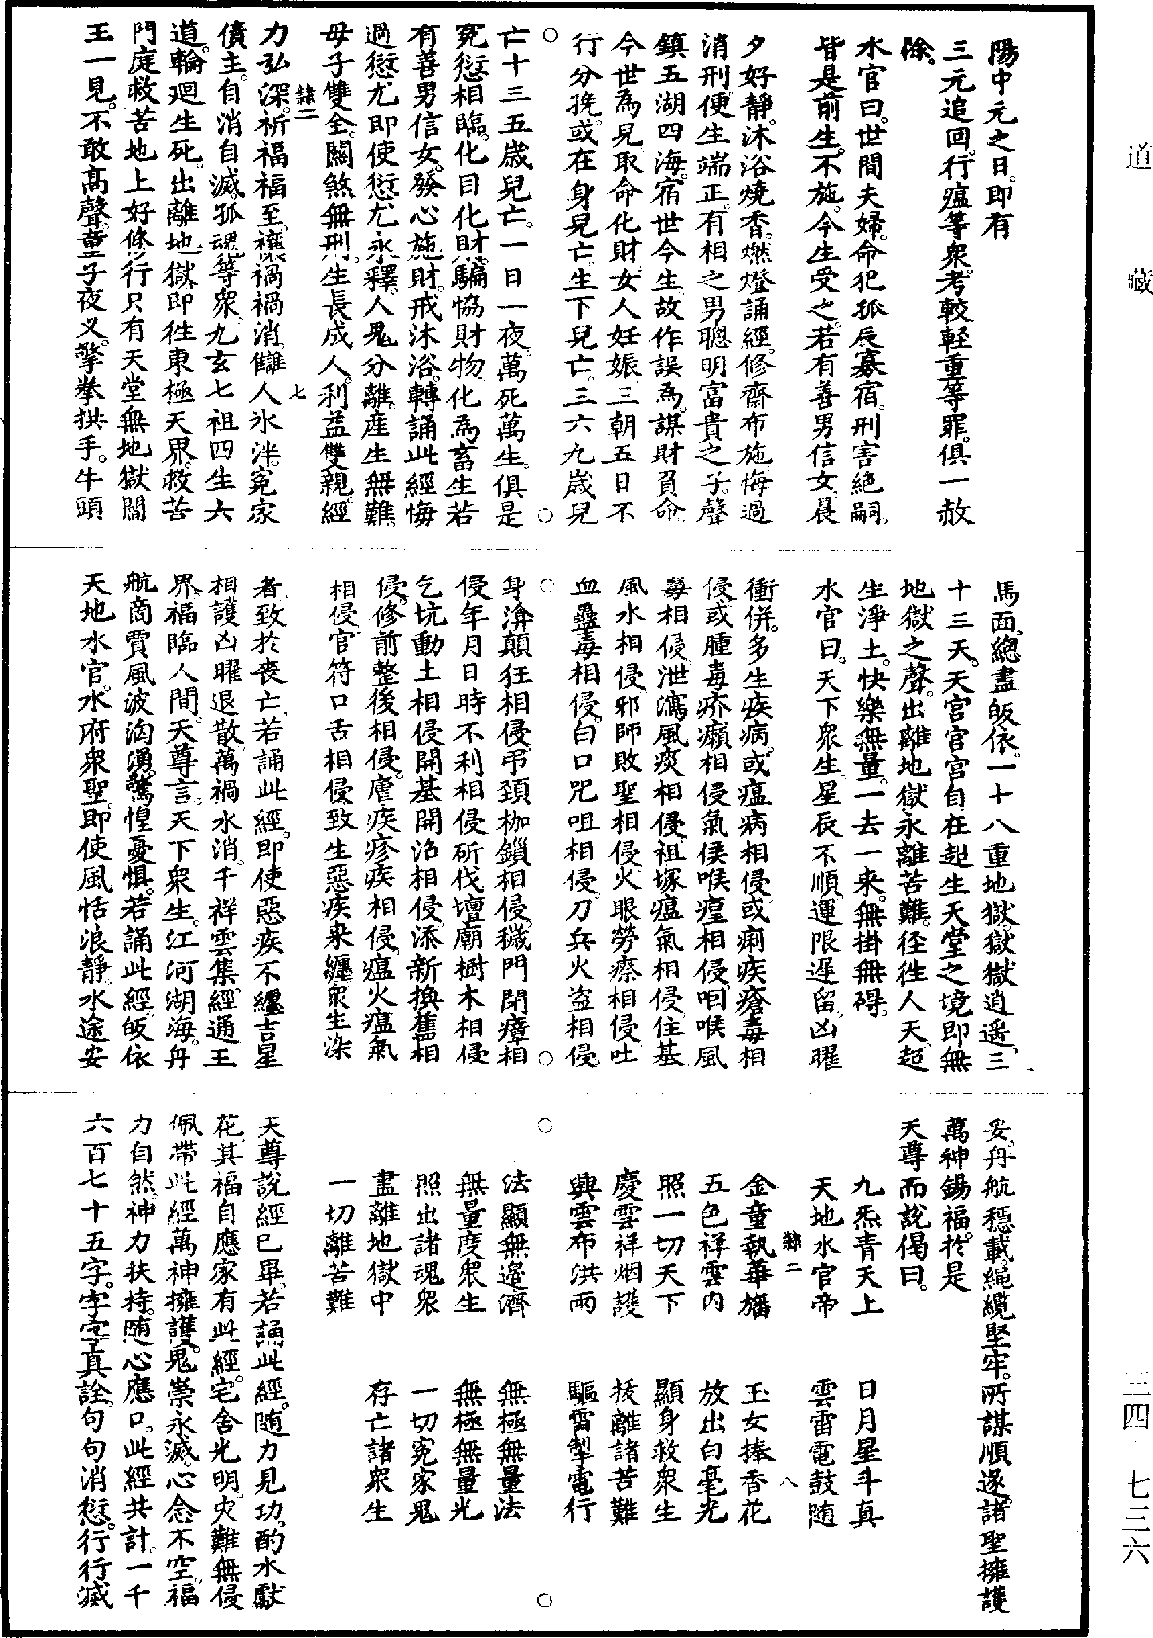 道藏
三四·七三六
陽中元之日。即有
三元追回。行瘟等衆。考較輕重等罪。俱一赦
除。
水官曰。世間夫婦。命犯孤辰寡宿。刑害絶嗣。
皆是前生。不施。今生受之。若有善男信女。晨
夕好靜。沐浴燒香。燃燈誦經。修齋布施。悔過
消刑。便生端正。有相之男。聰明富貴之子。聲
鎮五湖四海。宿世今生。故作誤爲。謀財負命。
今世爲兒取命化財。女人妊娠。三朝五日不
行分挽。或在身兒亡。生下兒亡。三六九歲兒
亡。十三五歲兒亡。一日一夜。萬死萬生。俱是
冤愆相臨。化目化財。騙協財物。化爲畜生。若
有善男信女。發心施財。戒沐浴。轉誦此經。悔
過愆尤。即使愆尤永釋。人鬼分離。產生無難。
母子雙全。關煞無刑。生長成人。利益雙親。經
隸二 七
力弘深。祈福福至。禳禍禍消。讎人氷泮。冤家
債主。自消自滅。孤魂等衆。九玄七祖。四生六
道。輪廻生死。出離地獄。即往東極天界。救苦
門庭。救苦地上好修行。只有天堂無地獄。閻
王一見。不敢高聲。童子夜叉。擎拳拱手。牛頭
馬面。總盡皈依。一十八重地獄。獄獄逍遥。三
十三天。天宮宮宮自在。起生天堂之境。即無
地獄之聲。出離地獄。永離苦難。徑往人天。超
生淨土。快樂無量。一去一來。無掛無碍。
水官曰。天下衆生。星辰不順。運限遲留。凶曜
衝併。多生疾病。或瘟病相侵。或痢疾瘡毒相
侵。或腫毒疥癩相侵。氣侯喉㾮相侵。咽喉風
毒相侵。泄瀉風痰相侵。祖塚瘟氣相侵。住基
風水相侵。邪師敗聖相侵。火眼勞瘵相侵。吐
血蠱毒相侵。白口咒咀相侵。刀兵火盜相侵。
身濟顛狂相侵。吊頸枷鎖相侵。穢門閉瘴相
侵。年月日時不利相侵。斫伐壇廟樹木相侵。
乞坑動土相侵。開基開沼相侵。添新換舊相
侵。修前整後相侵。瘧疾疹疾相侵。瘟火瘟氣
相侵。官符口舌相侵。致生惡疾。來纏衆生。深
者致於喪亡。若誦此經。即使惡疾不纏。吉星
相護。凶曜退散。萬禍水消。千祥雲集。經通王
界。福臨人間。天尊言。天下衆生。江河湖海。舟
航商賈。風波洶湧。驚惶憂惧。若誦此經。皈依
天地水官。水府衆聖。即使風恬浪靜。水途安
妥。舟航穩載。繩纜堅牢。所謀順遂。諸聖擁護
萬神錫福。於是
天尊而說偈曰。
九炁青天上 日月星斗真
天地水官帝 雲雷電鼓随
隸二 八
金童執華旛 玉女捧香花
五色祥雲內 放出白毫光
照一切天下 顯身救衆生
慶雲祥烟護 拔離諸苦難
興雲布洪雨 驅雷掣電行
法顯無邊濟 無極無量法
無量度衆生 無極無量光
照出諸魂衆 一切冤家鬼
盡離地獄中 存亡諸衆生
一切離苦難
天尊說經已畢。若誦此經。随力見功。酌水獻
花。其福自應。家有此經。宅舍光明。灾難無侵
佩帶此經。萬神擁護。鬼祟永滅。心念不空。福
力自然。神力扶持。随心應口。此經共計。一千
六百七十五字。字字真詮。句句消愆。行行滅